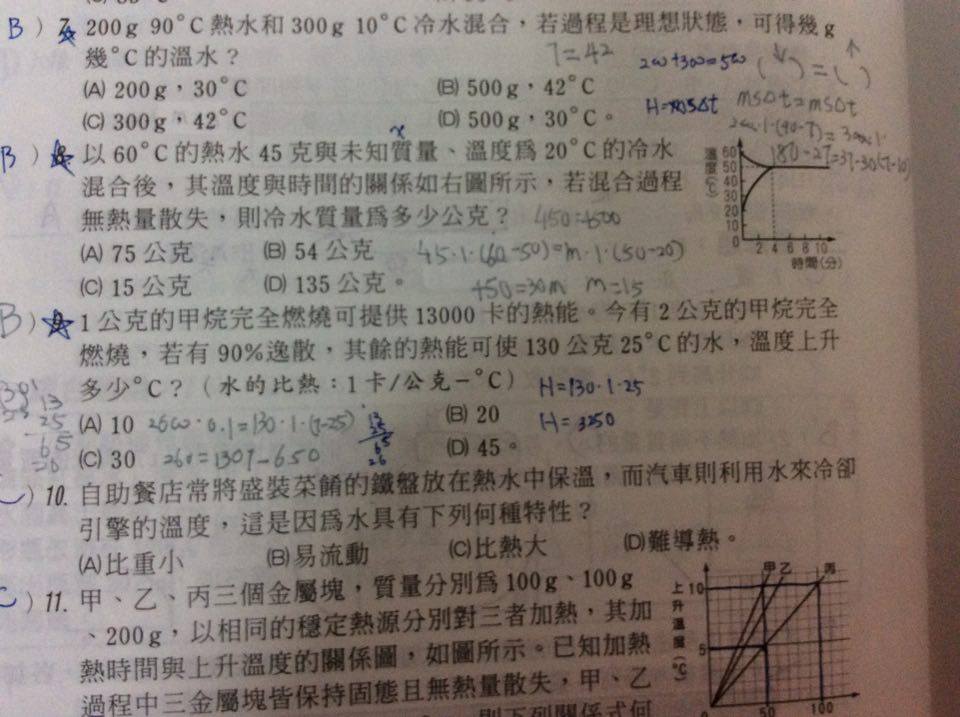 B) 7. 200g 90°C熱水和300g 10°C冷水混合,若過程是理想狀態,可得幾g
幾°C的溫水?
T=42
200+300=500
( ↓ )=( ↑ )
(A) 200g,30°C
(B) 500g,42°C
H=mSΔt
mSΔt=mSΔt
(C) 300g,42°C
(D) 500g,30°C。
x
B) 以60°C的熱水45克與未知質量、溫度為20°C的冷水
混合後,其溫度與時間的關係如右圖所示,若混合過程
無熱量散失,則冷水質量為多少公克?
450=
(A) 75公克
(B) 54公克
45·1·(60-50)=m·1·(50-20)
(C) 15公克
(D) 135公克。
450=30m m=15
溫度(℃)
60
50
40
30
20
10
0
2 4 6 8 10
時間(分)
B) 1公克的甲烷完全燃燒可提供13000卡的熱能。今有2公克的甲烷完全
燃燒,若有90%逸散,其餘的熱能可使130公克25°C的水,溫度上升
多少°C?(水的比熱:1卡/公克-°C)
H=130·1·25
(A) 10
(B) 20
H=3250
13
25
65
26
(C) 30
(D) 45。
10. 自助餐店常將盛裝菜餚的鐵盤放在熱水中保溫,而汽車則利用水來冷卻
引擎的溫度,這是因為水具有下列何種特性?
(A)比重小
(B)易流動
(C)比熱大
(D)難導熱。
) 11. 甲、乙、丙三個金屬塊,質量分別為100g、100g
、200g,以相同的穩定熱源分別對三者加熱,其加
熱時間與上升溫度的關係圖,如圖所示。已知加熱
過程中三金屬塊皆保持固態且無熱量散失,甲、乙
則下列關係式何
上升溫度(℃)
甲乙 丙
10
5
0
50
100